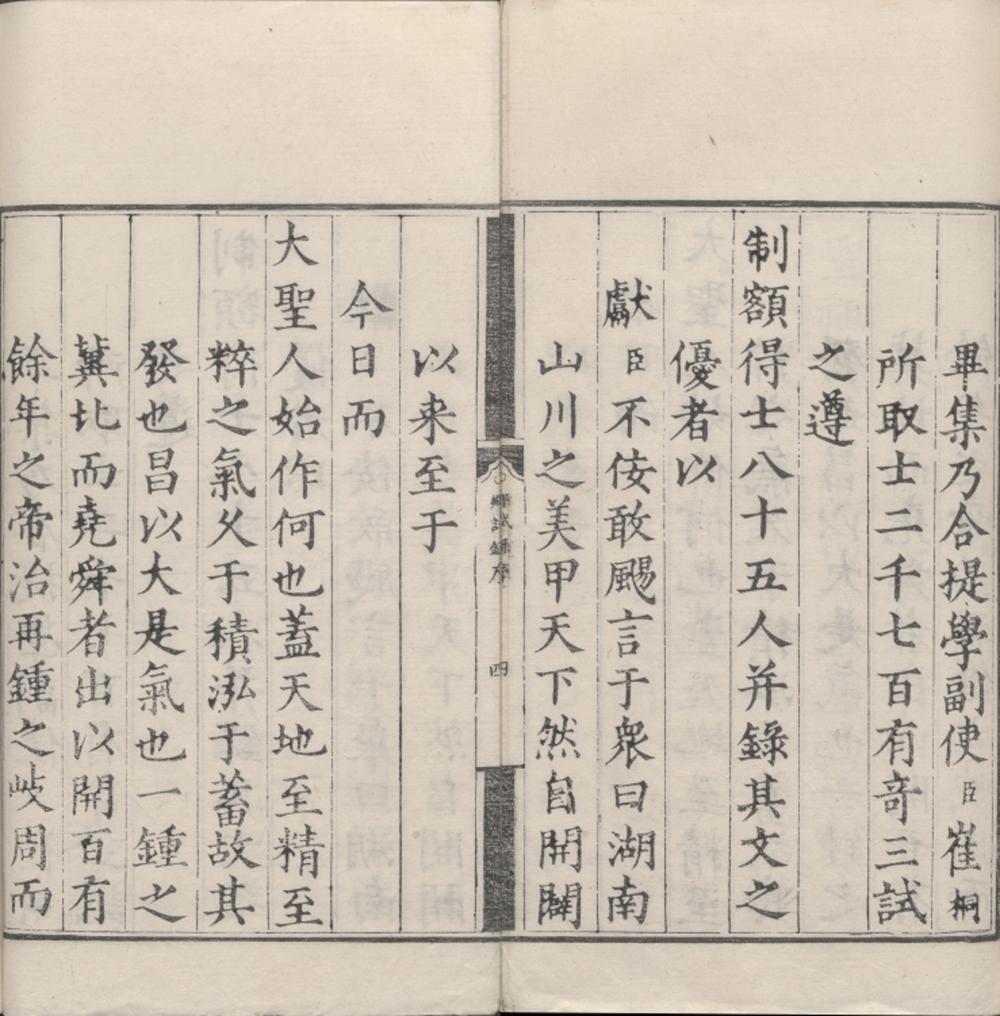 畢集乃合提學副使臣崔桐
所取士二千七百有奇三試
之遵
制額得士八十五人并錄其文之
優者以
獻臣不佞敢颺言于衆曰湖南
山川之美甲天下然自開闢
鄉試錄序
四
以来至于
今日而
大聖人始作何也蓋天地至精至
粹之氣乆于積泓于蓄故其
發也昌以大是氣也一鍾之
冀北而堯舜者出以開百有
餘年之帝治再鍾之岐周而